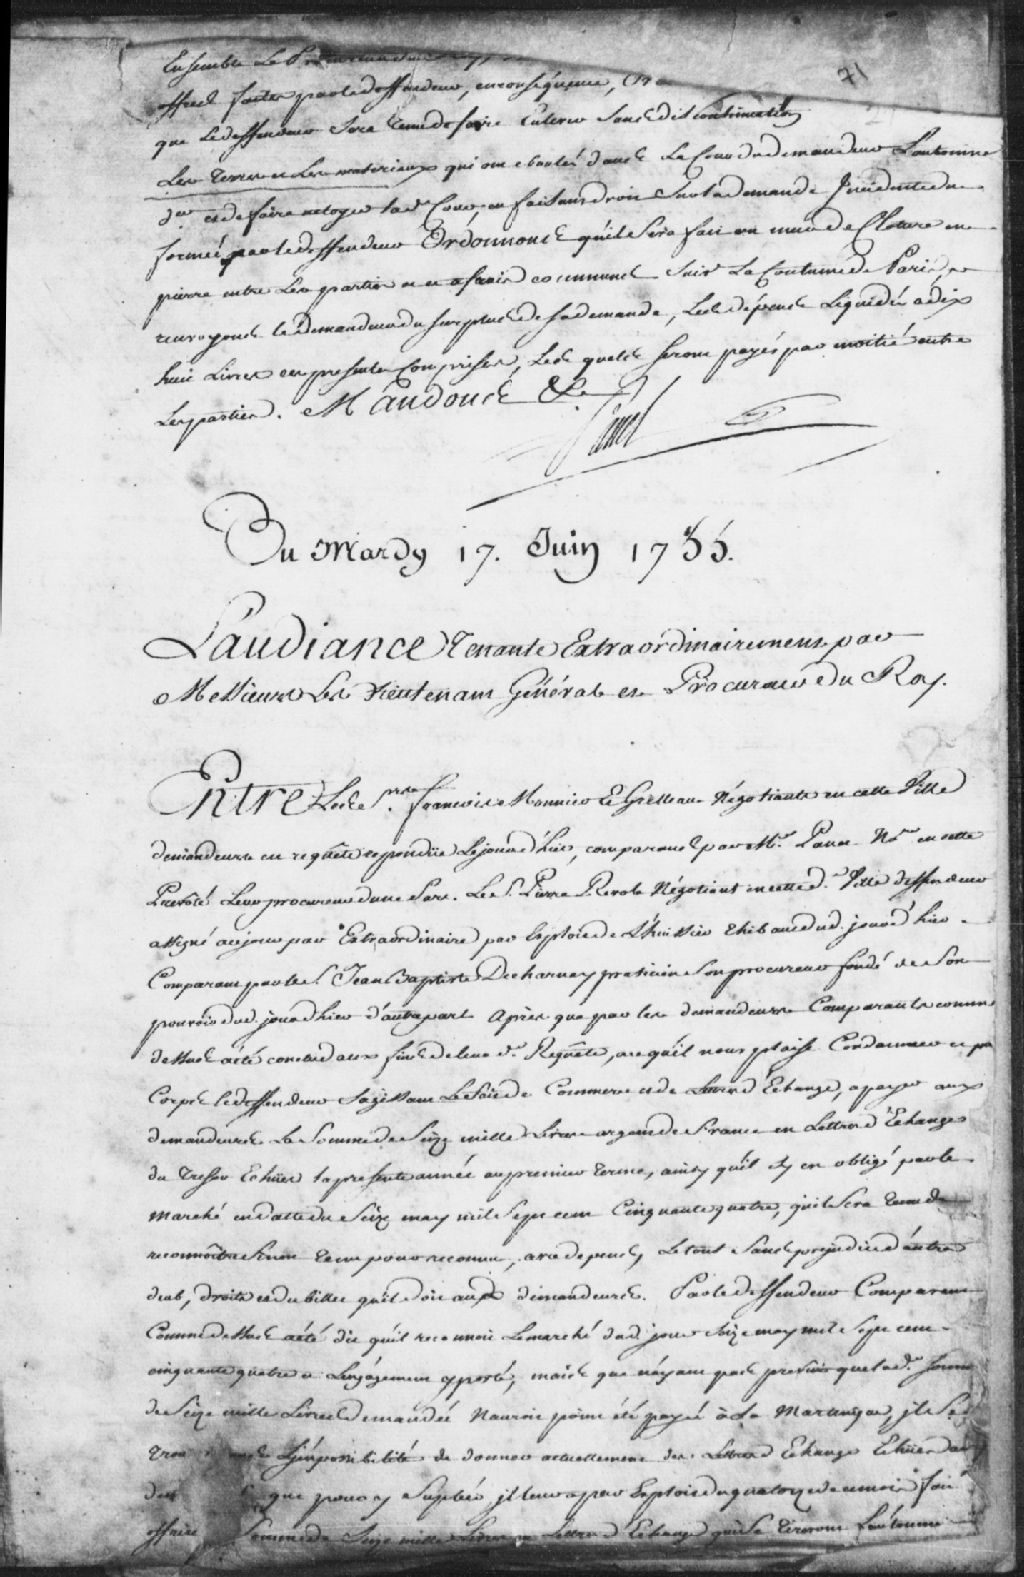 71
Ensemble Le
offres faites par le deffendeur, en conséquence,
que Le deffendeur Sera Tenu de faire Enlever Sans Discontinuation
Les Terres et Les materiaux qui ont eboulés dans La Cour du demandeur
et de faire netoyer lad. Cour, et faisant droit Sur la demande Incidente
formée par le deffendeur Ordonnons qu'il Sera fait un mur de Cloture en
pierre entre Les parties et a frais communs Suivt La Coutume de Paris,
renvoyons le demandeur du Surplus de Sa demande, Les dépens Liquidés à dix
huit Livres ces presentes Comprises, Les quels Seront payés par moitié entre
Les parties. Mandons &a
Du Mardy 17. Juin 1755.
L'audiance Tenante Extraordinairement par
Messieurs Les Lieutenant Général et Procureur du Roy.
Entre Les Srs francois Mounier & Grelleau Négotiants en cette Ville
demandeurs en requête repondüe Le jour d'hier, comparants par Me. Panet Nre. en cette
Prevôté Leur procureur d'une Part. Le Sr. Pierre Revol Négotiant en cette d. Ville deffendeur
assigné a ce jour par Extraordinaire par Exploit de L'huissier Thibault dud. jour d'hier
Comparant par le Sr. Jean Baptiste Decharnay praticien Son procureur fondé de Son
pouvoir dud. jour d'hier d'autre part. Après que par les demandeurs Comparants comme
dessus a été conclud aux fins de leur de. Requête, a ce qu'il nous plaise Condamner et par
Corps le deffendeur S'agissant Le Fait de Commerce et de Lettres d'Echange, a payer aux
demandeurs La Somme de Seize mille Livres argent de France en Lettres d'Echange
du Tresor Echües la presente année au premier terme, ainsy qu'il s'y est obligé par le
marché en datte du Seize may mil Sept cent Cinquante quatre, qu'il Sera Tenu de
reconnoitre Sinon Tenu pour reconnu, avec depens, Le tout Sans prejudice d'autres
dus, droits et du billet qu'il doit aux demandeurs. Par le deffendeur Comparant
Comme dessus a été dit qu'il reconnoit Le marché dud. jour Seize may mil Sept cent
cinquante quatre et L'engagement y porté, mais que n'ayant pas prevû que lad. Somme
de Seize mille Livres demandée n'auroit point été payée à La Martinique, il Se
L'impossibilité de donner actuellement des Lettres d'Echange Echües
que pour y Supléer il leur a par Exploit du quatorze de ce mois fait
offrir Somme de Seize mille Livres en Lettres d'Echange qui Se Tireront L'automne